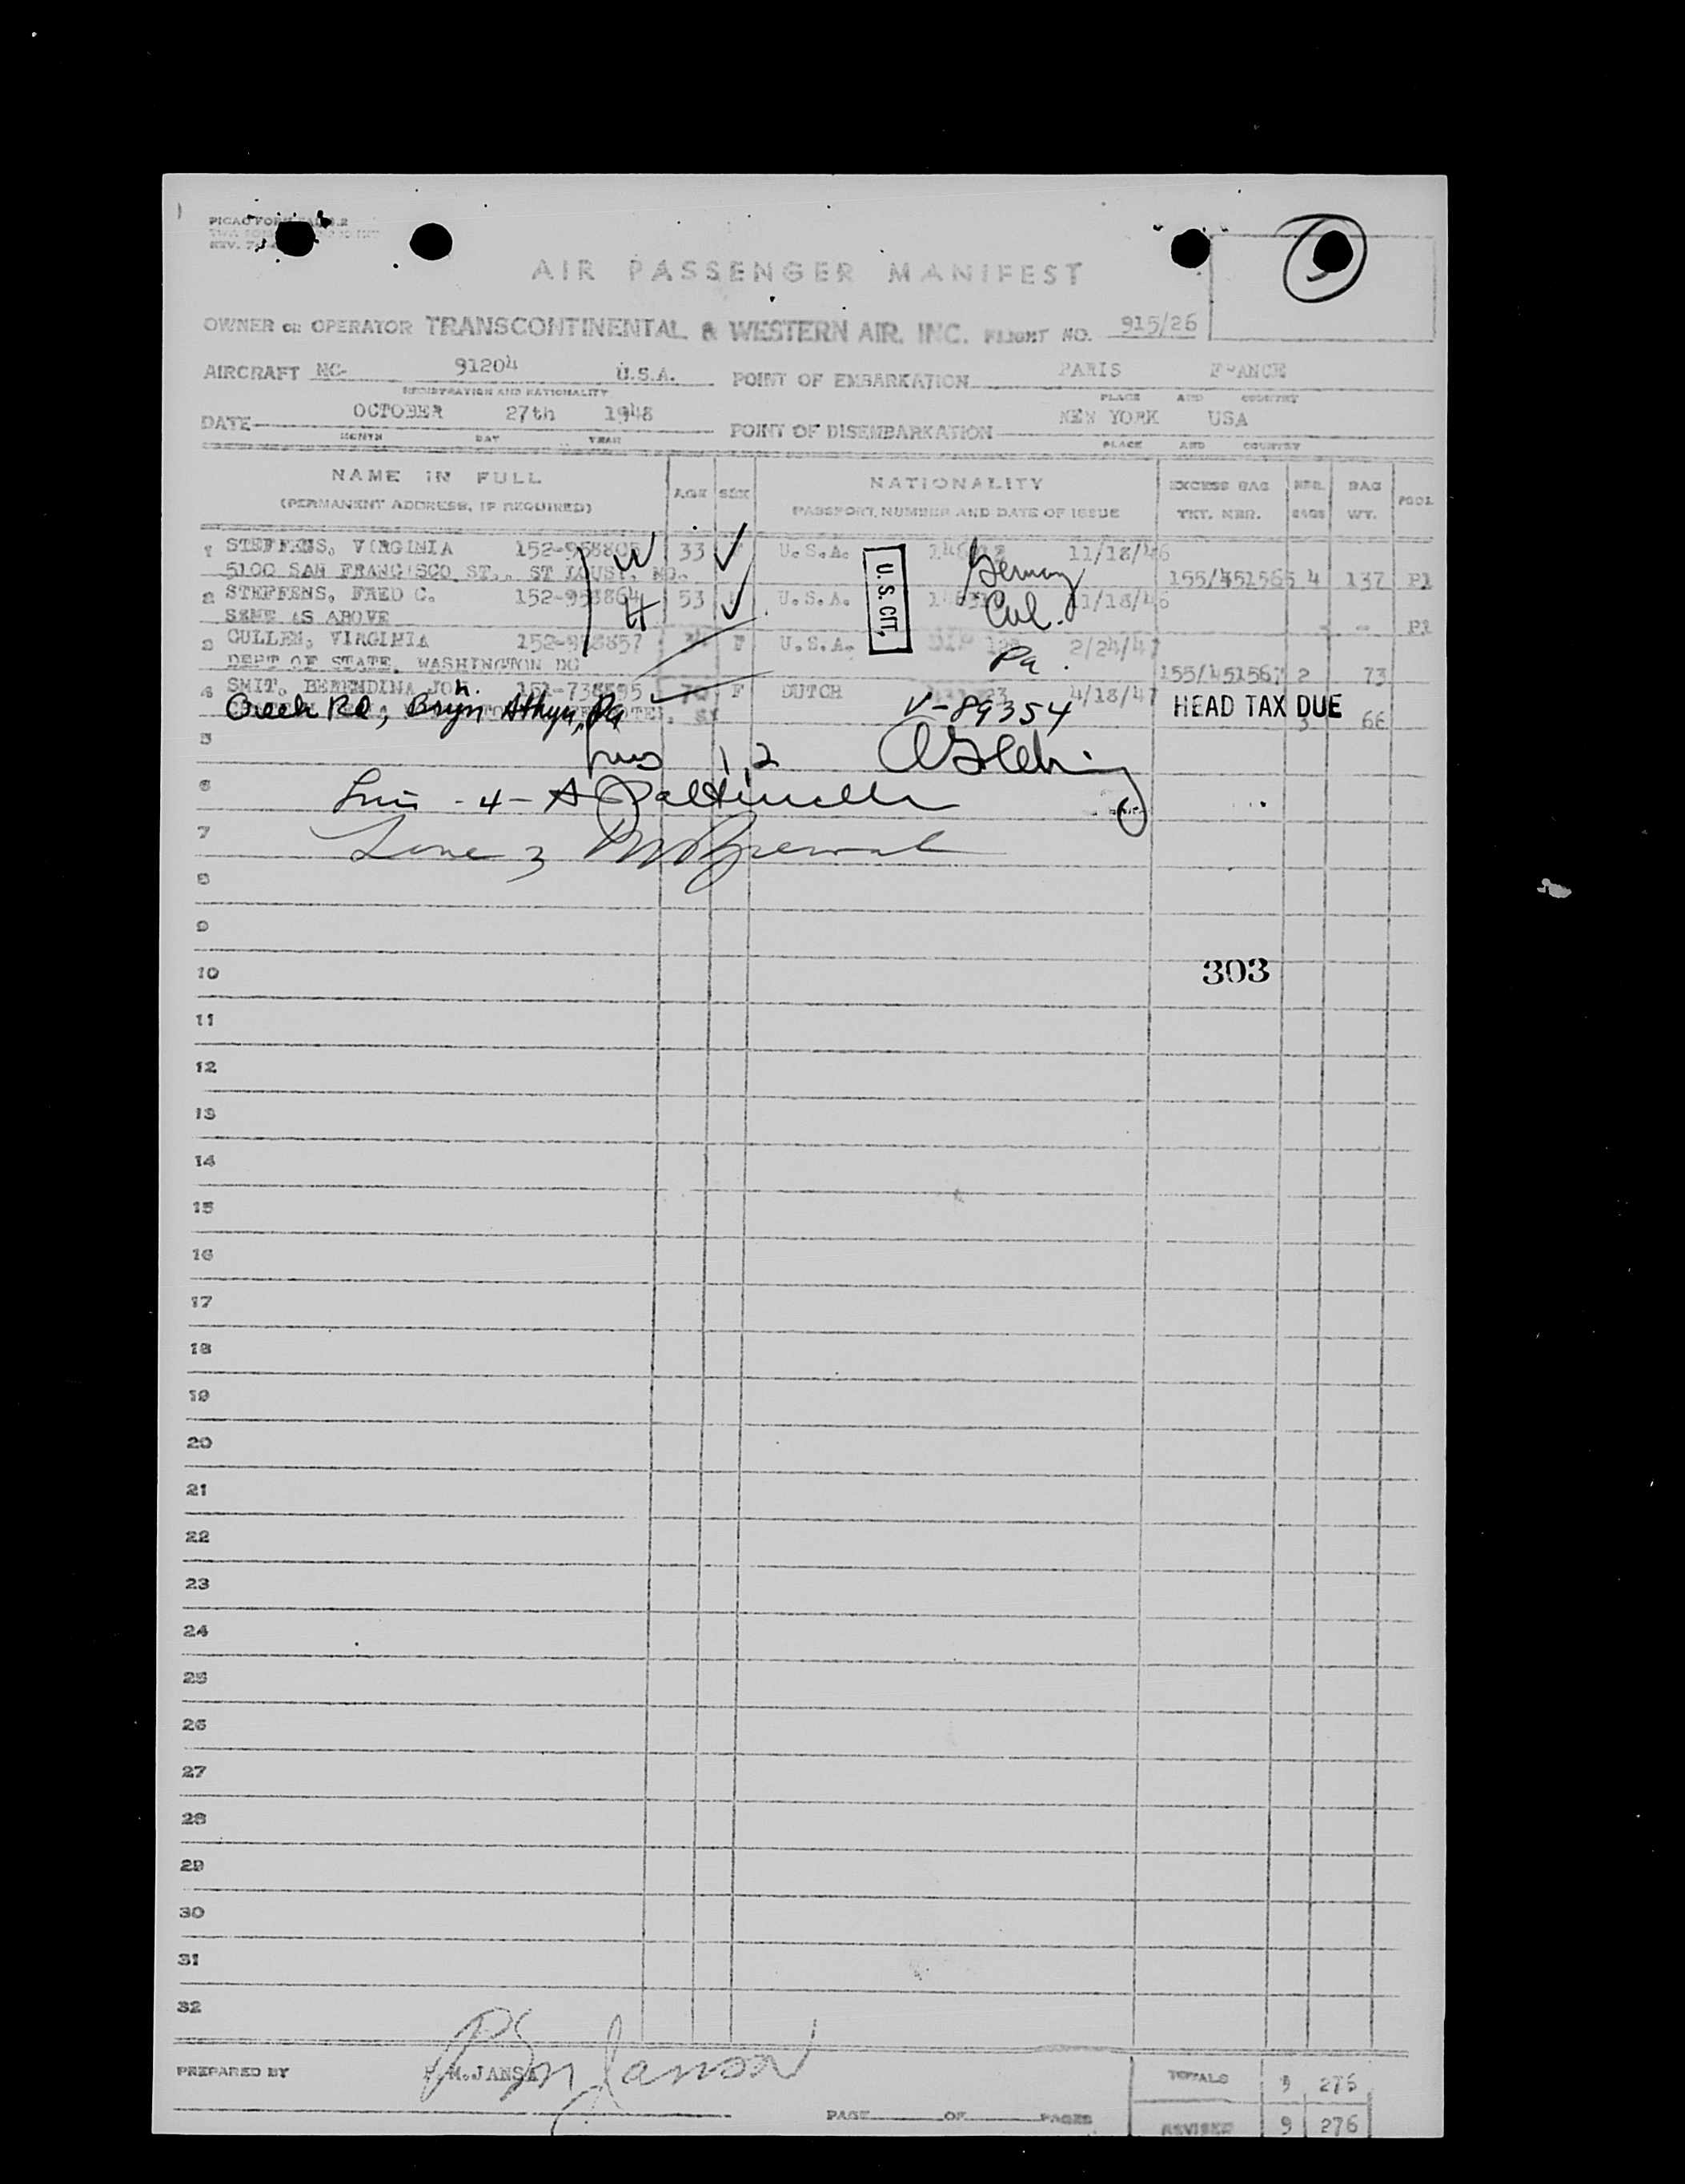 PICAO FORM
REV.
AIR PASSENGER MANIFEST
OWNER OR OPERATOR TRANSCONTINENTAL & WESTERN AIR, INC. FLIGHT NO. 915/26
AIRCRAFT NC- 91204 U.S.A. POINT OF EMBARKATION PARIS FRANCE
REGISTRATION AND NATIONALITY PLACE AND COUNTRY
DATE OCTOBER 27th 1948 POINT OF DISEMBARKATION NEW YORK USA
MONTH DAY YEAR PLACE AND COUNTRY
NAME IN FULL AGE SEX NATIONALITY EXCESS BAG NBR. BAG POOL
(PERMANENT ADDRESS, IF REQUIRED) PASSPORT, NUMBER AND DATE OF ISSUE TKT. NBR. BAGS WT.
1 STEFFENS, VIRGINIA W 33 U.S.A. 11/18/46
5100 SAN FRANCISCO ST., ST LOUST, MO. Germany 155/451565 4 137 P1
2 STEFFENS, FRED C. 152-958864 H 53 U.S.A. U.S. CIT. Cal. 11/18/46
SAME AS ABOVE - - P1
3 CULLEN, VIRGINIA 152-958857 F U.S.A. 2/24/47
DEPT OF STATE, WASHINGTON DC Pa. 155/451567 2 73
4 SMIT, BERENDINA JOH. 151-738895 F DUTCH 4/18/47
Creek Rd, Bryn Athyn, Pa V-89354 HEAD TAX DUE 3 66
5 1,2
6 - 4 -
7 Line 3
8
9
10 303
11
12
13
14
15
16
17
18
19
20
21
22
23
24
25
26
27
28
29
30
31
32
PREPARED BY M. JANSA TOTALS 9 276
PAGE OF PAGES REVISED 9 276